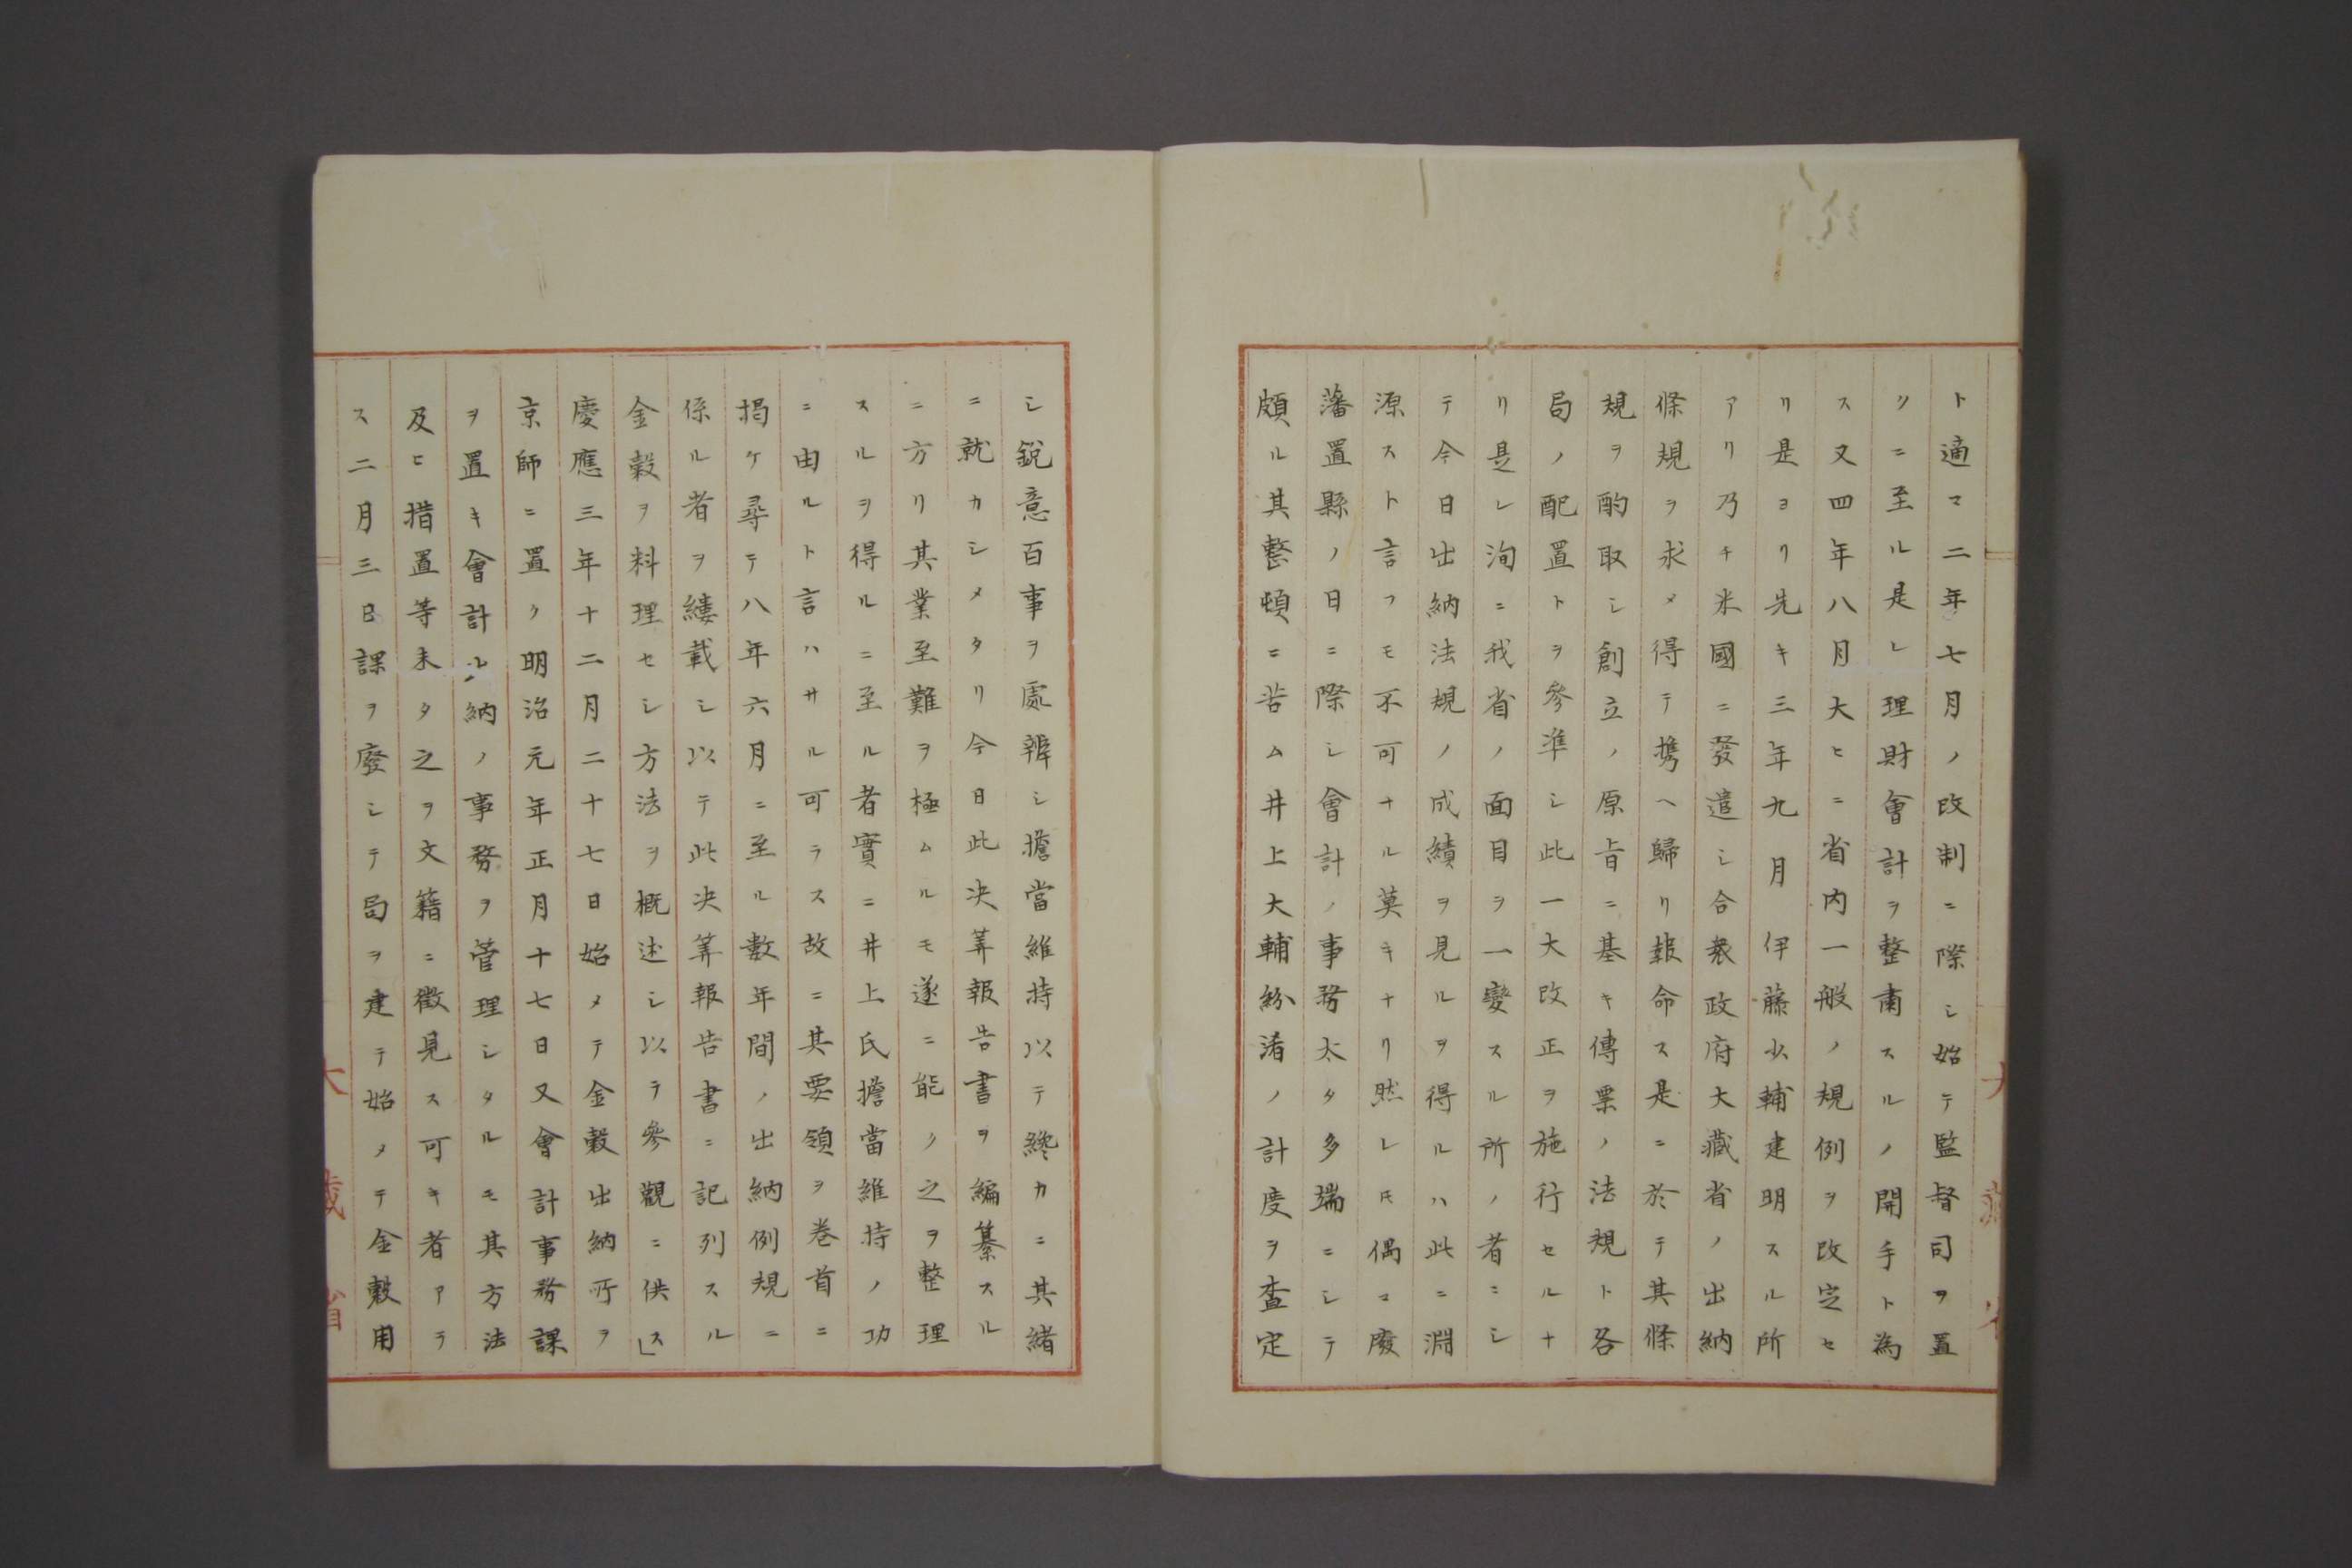 ト適マ二年七月ノ改制ニ際シ始テ監督司ヲ置
クニ至ル是レ理財會計ヲ整肅スルノ開手ト為
ス又四年八月大ヒニ省内一般ノ規例ヲ改定セ
リ是ヨリ先キ三年九月伊藤少輔建明スル所
アリ乃チ米國ニ發遣シ合衆政府大藏省ノ出納
條規ヲ求メ得テ携ヘ歸リ報命ス是ニ於テ其條
規ヲ酌取シ創立ノ原旨ニ基キ傳票ノ法規ト各
局ノ配置トヲ參準シ此一大改正ヲ施行セルナ
リ是レ洵ニ我省ノ面目ヲ一變スル所ノ者ニシ
テ今日出納法規ノ成績ヲ見ルヲ得ルハ此ニ淵
源スト言フモ不可ナル莫キナリ然レ𪜈偶マ廢
藩置縣ノ日ニ際シ會計ノ事務太タ多端ニシテ
頗ル其整頓ニ苦ム井上大輔紛淆ノ計度ヲ査定
シ銳意百事ヲ處辨シ擔當維持以テ終カニ其緒
ニ就カシメタリ今日此決算報告書ヲ編纂スル
ニ方リ其業至難ヲ極ムルモ遂ニ能ク之ヲ整理
スルヲ得ルニ至ル者實ニ井上氏擔當維持ノ功
ニ由ルト言ハサル可ラス故ニ其要領ヲ巻首ニ
揭ケ尋テ八年六月ニ至ル數年間ノ出納例規ニ
係ル者ヲ縷載シ以テ此決算報告書ニ記列スル
金穀ヲ料理セシ方法ヲ概述シ以テ參觀ニ供ス」
慶應三年十二月二十七日始メテ金穀出納所ヲ
京師ニ置ク明治元年正月十七日又會計事務課
ヲ置キ會計出納ノ事務ヲ管理シタルモ其方法
及ヒ措置等未タ之ヲ文籍ニ徵見ス可キ者アラ
ス二月三日課ヲ廢シテ局ヲ建テ始メテ金穀用
大藏省